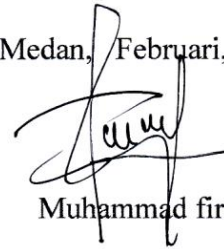 Medan, Februari,
Muhammad fir